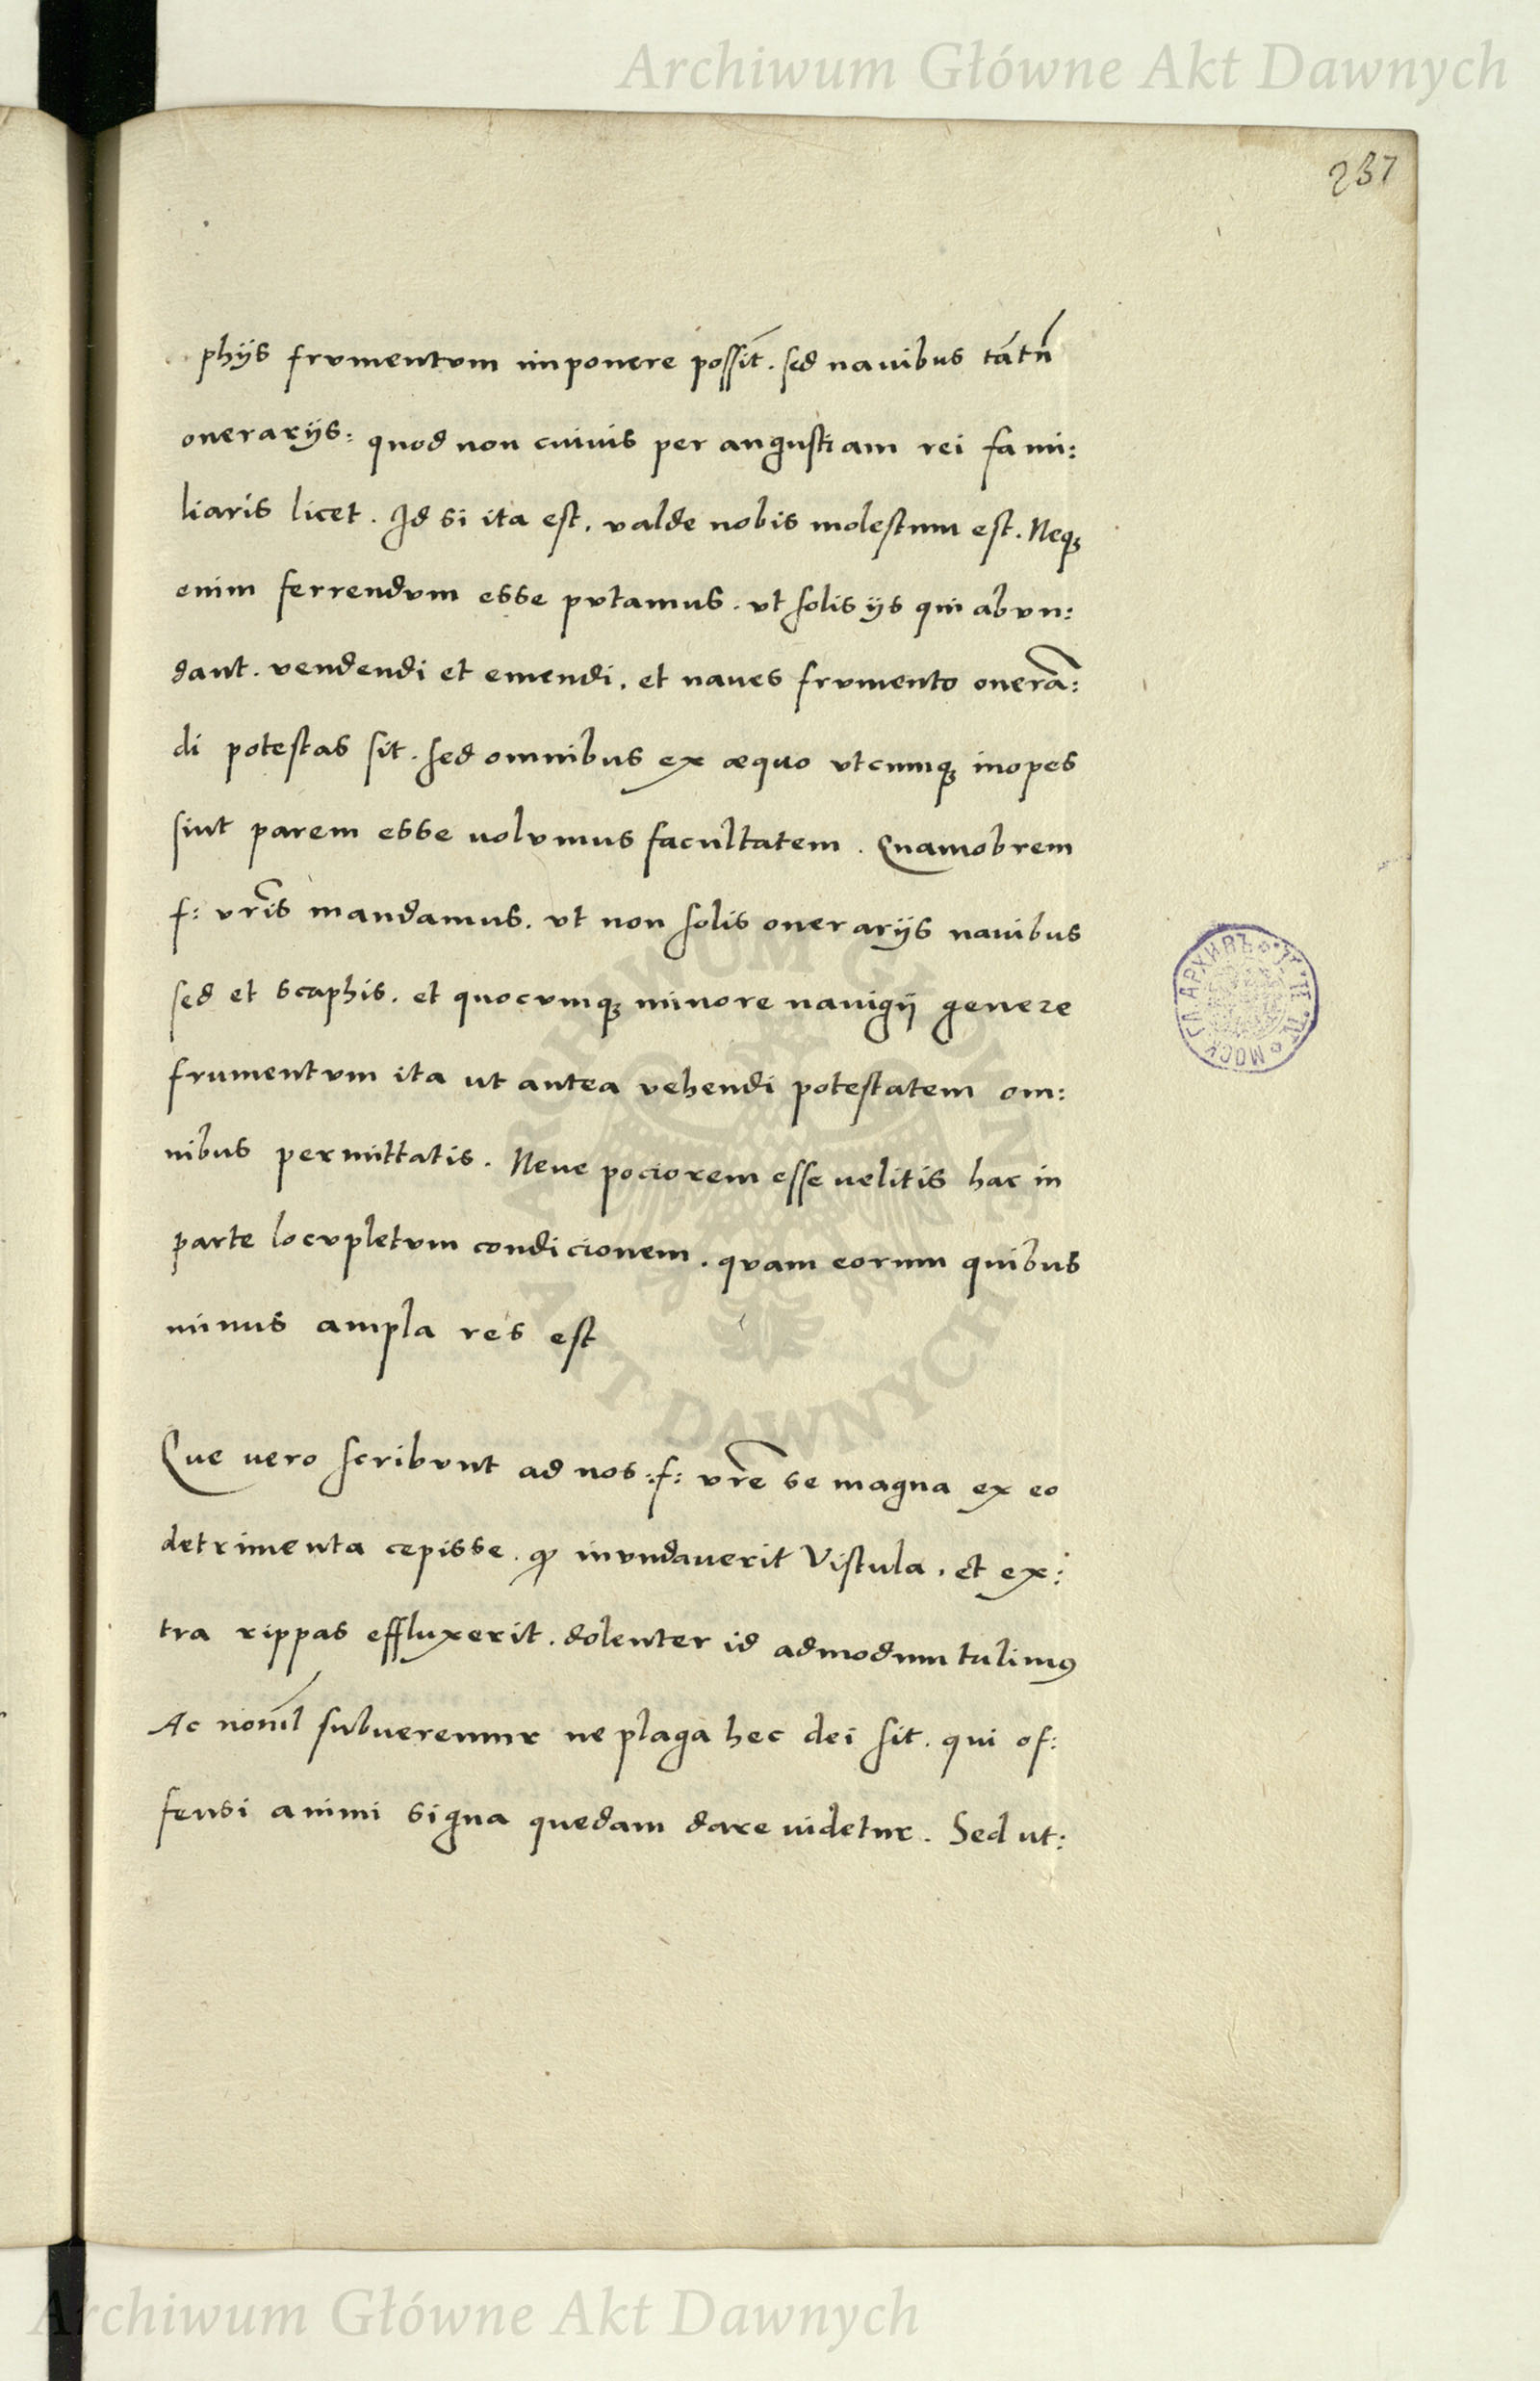 Archiwum Główne Akt Dawnych
237
phijs frvmentvm imponere possit̄. sed nauibus tāt̄n
onerarijs: quod non cuiuis per angustiam rei fami:
liaris licet. Id si ita est. valde nobis molestum est. Neqꝫ
enim ferrendvm esse pvtamus. vt solis ijs qui abvn:
dant. vendendi et emendi. et naues frvmento onerā:
di potestas sit. sed omnibus ex æquo vtcumqꝫ inopes
sint parem esse uolvmus facultatem. Quamobrem
f: vr̄is mandamus. vt non solis onerarijs nauibus
sed et scaphis. et quocvmqꝫ minore nauigij genere
frumentvm ita ut antea vehendi potestatem om:
nibus permittatis. Neue pociorem esse uelitis hac in
parte locvpletvm condicionem. qvam eorum quibus
minus ampla res est
Qve uero scribvnt ad nos :f: vr̄e se magna ex eo
detrimenta cepisse. ꝙ invndauerit Vistula. et ex:
tra rippas effluxerit. dolenter id admodum tulimꝰ
Ac noni̅l subueremur ne plaga hec dei sit. qui of:
fensi animi signa quedam dare uidetur. Sed ut:
МОСК. ГЛ. АРХИВЪ
ARCHIWUM GŁÓWNE AKT DAWNYCH
Archiwum Główne Akt Dawnych